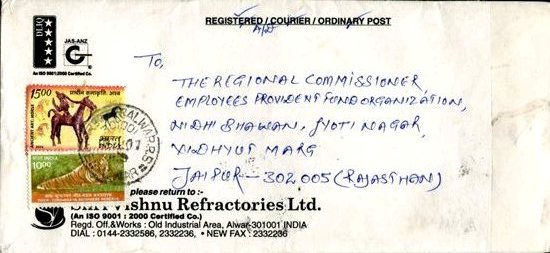 REGISTERED / COURIER / ORDINARY POST
A/D
DLIQ
JAS-ANZ
An ISO 9001:2000 Certified Co.
To,
THE REGIONAL COMMISSIONER,
EMPLOYEES PROVIDENT FUND ORGANIZATION,
NIDHI BHAWAN, JYOTI NAGAR,
VIDHYUT MARG
JAIPUR - 302005 (RAJASTHAN)
1500
1000
please return to :-
Shri Vishnu Refractories Ltd.
(An ISO 9001 : 2000 Certified Co.)
Regd. Off.& Works : Old Industrial Area, Alwar-301001 INDIA
DIAL : 0144-2332586, 2332236, • NEW FAX : 2332236